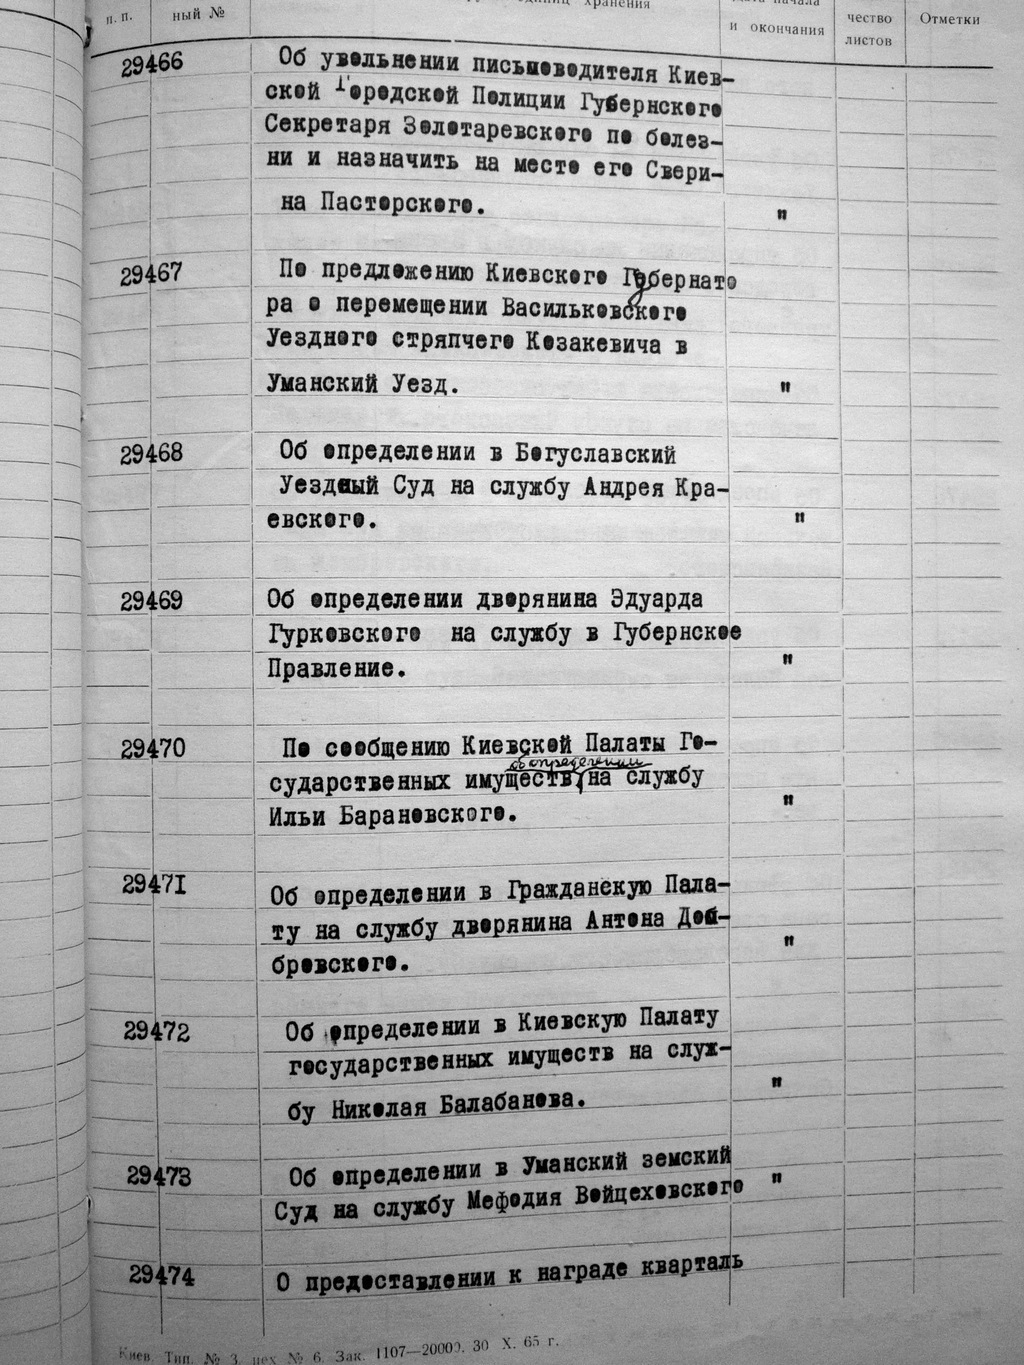 п. п.
ный №
единиц хранения
дата начала
и окончания
чество
листов
Отметки
29466
Об увольнении письмоводителя Киев-
ской Городской Полиции Губернского
Секретаря Золотаревского по болез-
ни и назначить на место его Свери-
на Пасторского. "
29467
По предложению Киевского Губернато
ра о перемещении Васильковского
Уездного стряпчего Козакевича в
Уманский Уезд. "
29468
Об определении в Богуславский
Уездный Суд на службу Андрея Кра-
евского. "
29469
Об определении дворянина Эдуарда
Гурковского на службу в Губернское
Правление. "
29470
По сообщению Киевской Палаты Го-
об определении
сударственных имуществ на службу
Ильи Барановского. "
29471
Об определении в Гражданскую Пала-
ту на службу дворянина Антона Дом-
бровского. "
29472
Об определении в Киевскую Палату
государственных имуществ на служ-
бу Николая Балабанова. "
29473
Об определении в Уманский земский
Суд на службу Мефодия Войцеховского "
29474
О предоставлении к награде кварталь
Киев. Тип. № 3, цех № 6. Зак. 1107—20000. 30 X. 65 г.